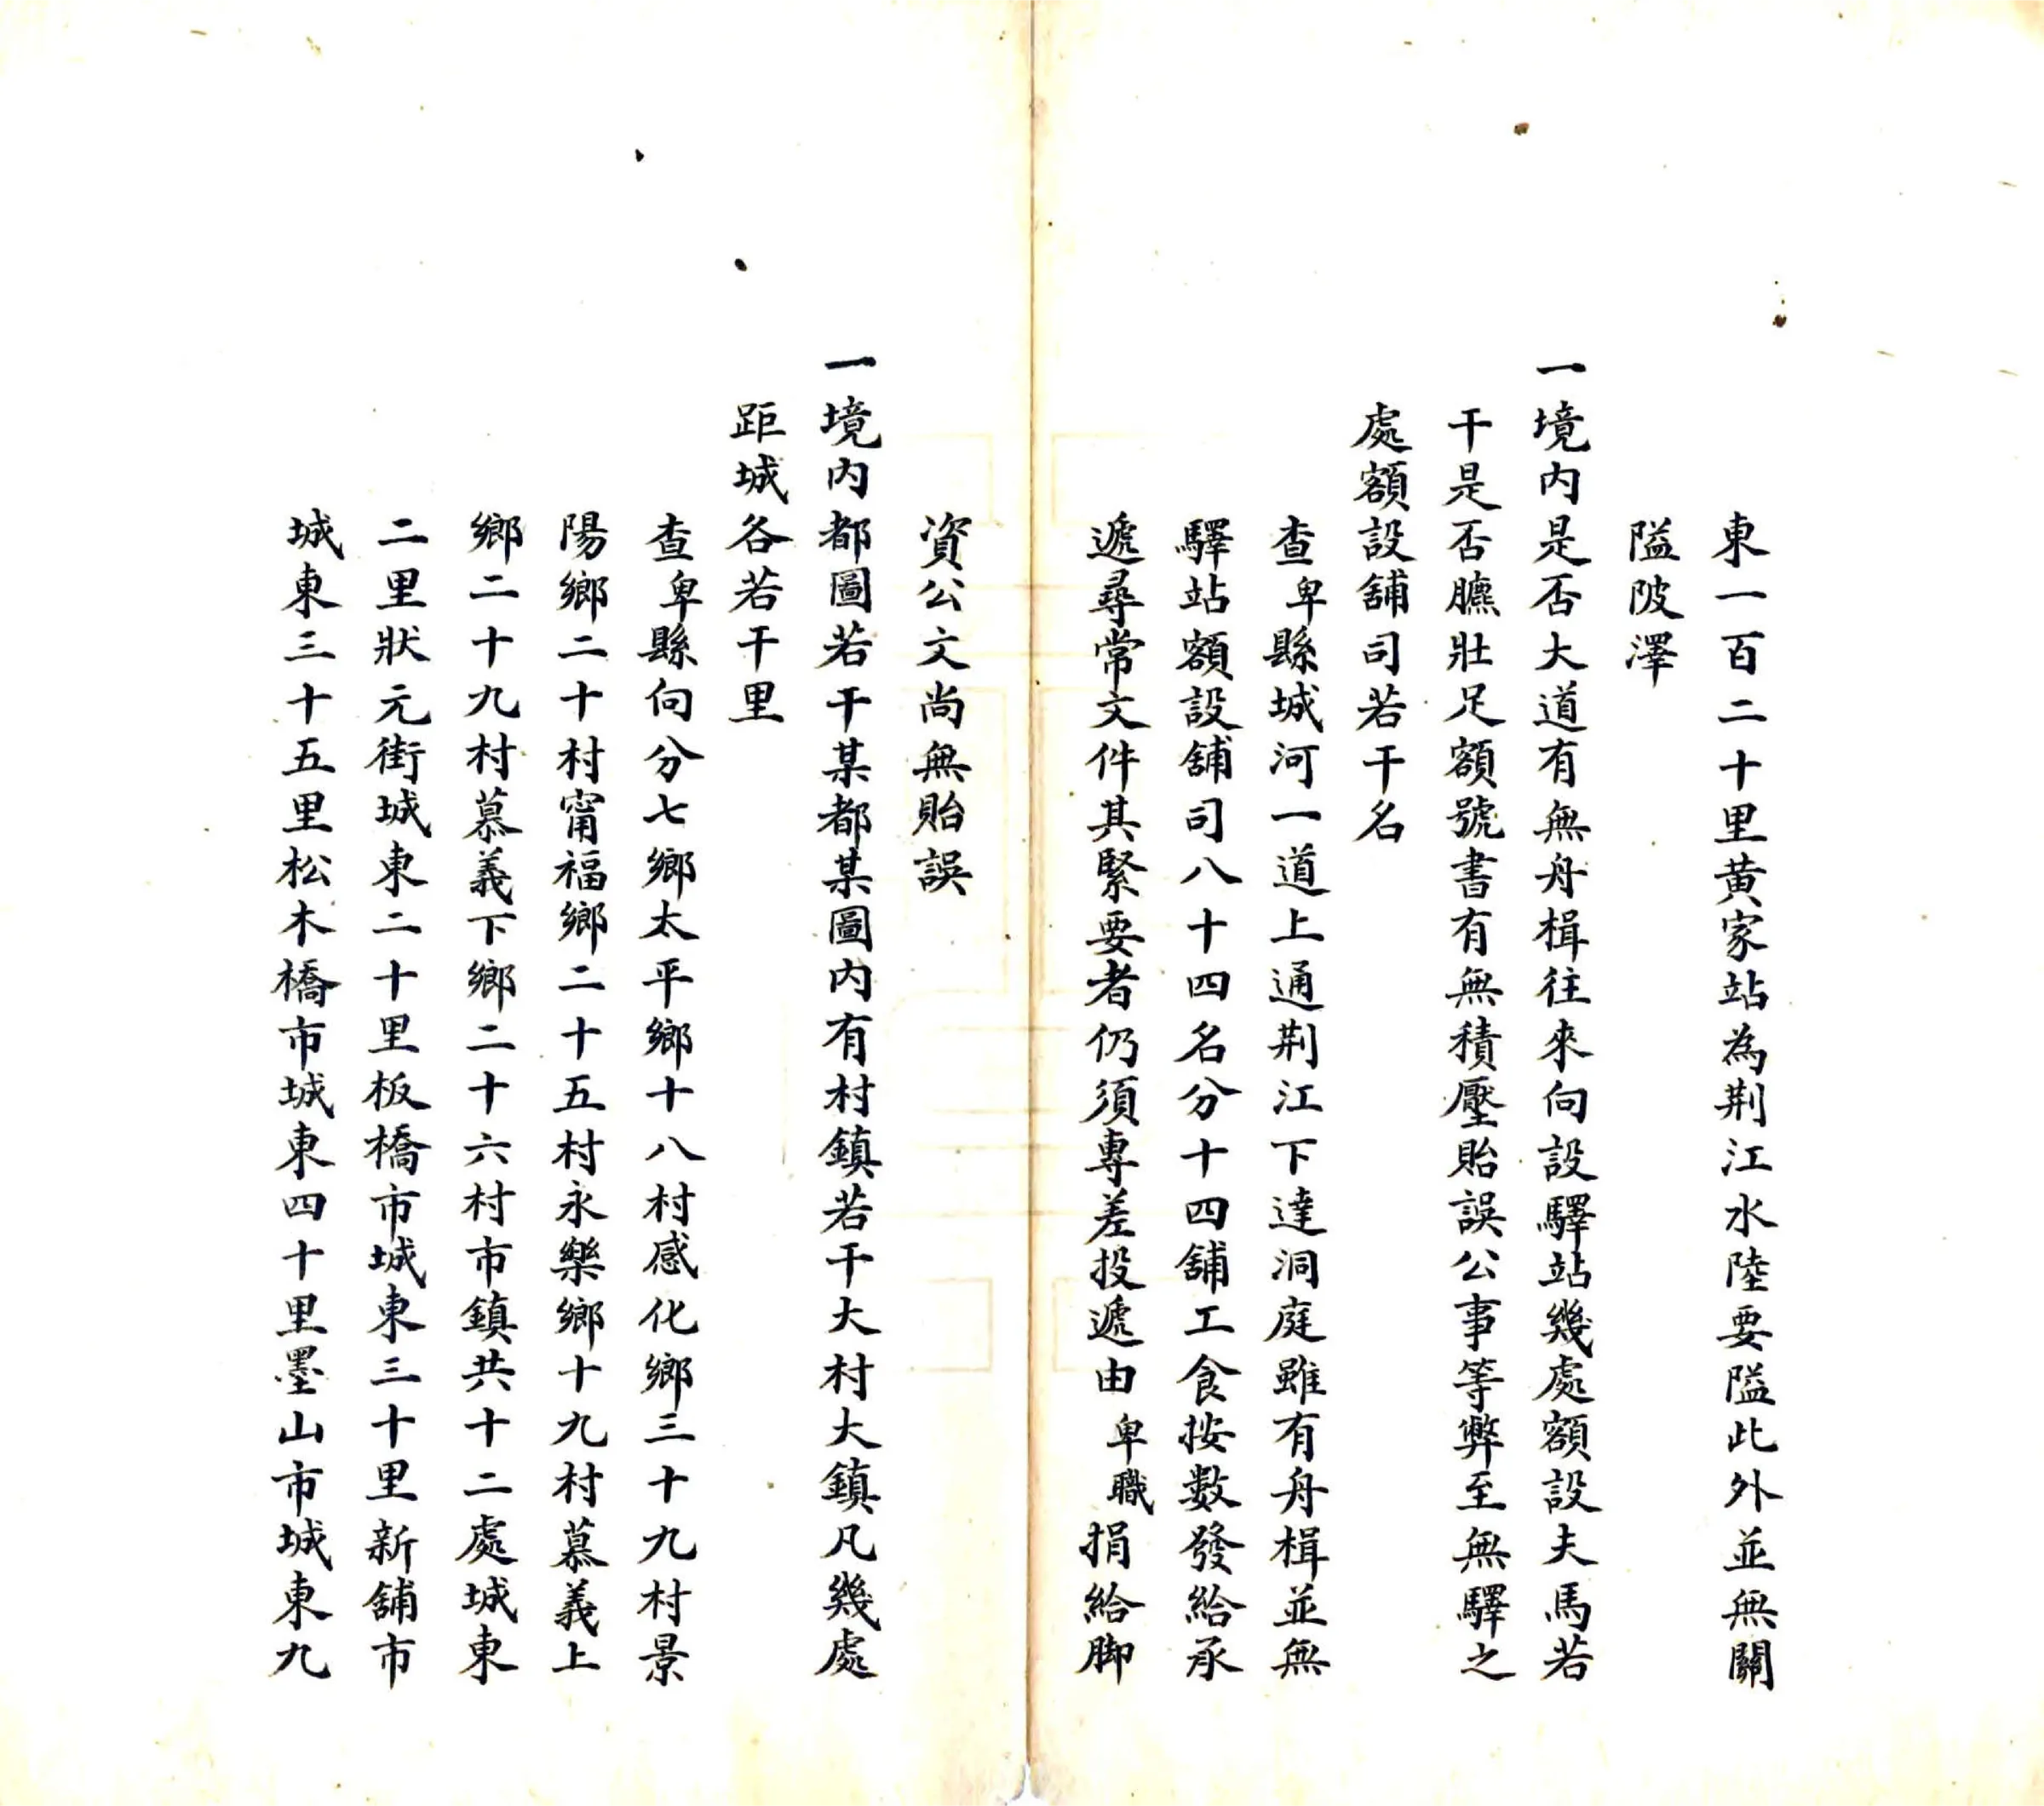 東一百二十里黃家站為荆江水陸要隘此外並無關
隘陂澤
一境内是否大道有無舟楫往來向設驛站幾處額設夫馬若
干是否臕壯足額號書有無積壓貽誤公事等弊至無驛之
處額設舖司若干名
查卑縣城河一道上通荆江下達洞庭雖有舟楫並無
驛站額設舖司八十四名分十四舖工食按數發給承
遞尋常文件其緊要者仍須專差投遞由卑職捐給脚
資公文尚無貽誤
一境内都圖若干某都某圖内有村鎮若干大村大鎮凡幾處
距城各若干里
查卑縣向分七鄉太平鄉十八村感化鄉三十九村景
陽鄉二十村甯福鄉二十五村永樂鄉十九村慕義上
鄉二十九村慕義下鄉二十六村市鎮共十二處城東
二里狀元街城東二十里板橋市城東三十里新舖市
城東三十五里松木橋市城東四十里墨山市城東九